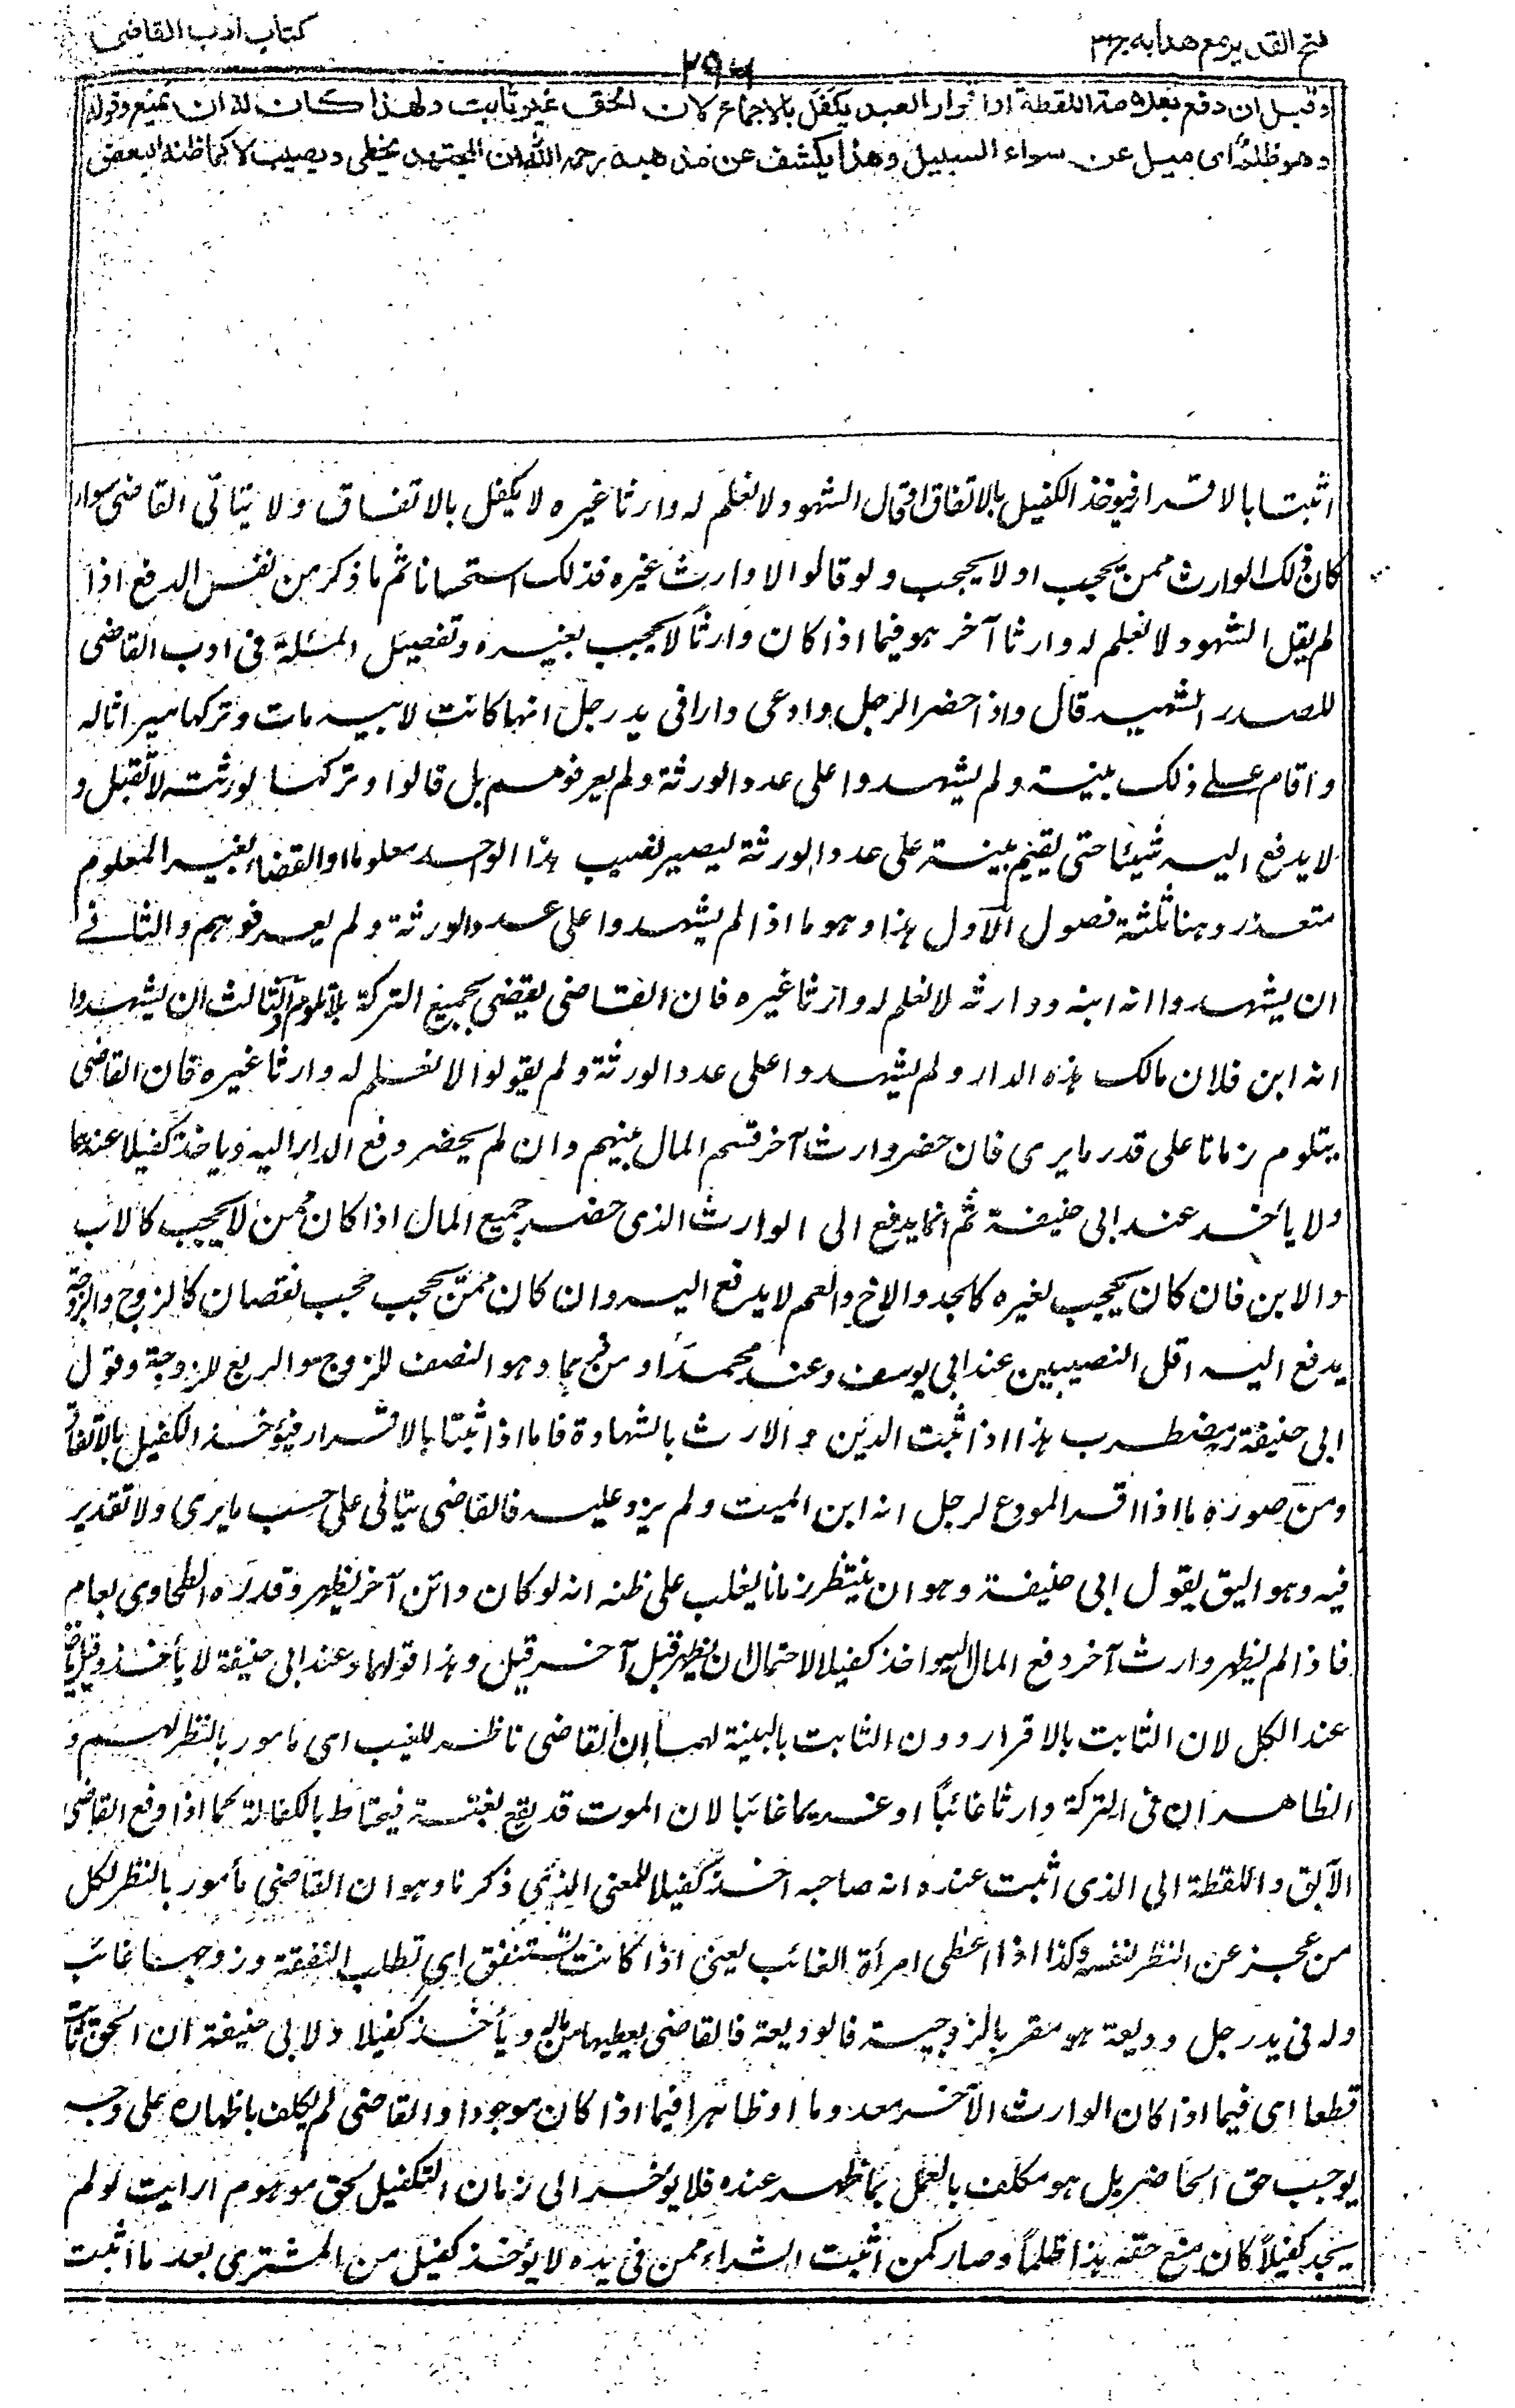 فتح القدير مع هدايه ج٣
٢٩٨
كتاب ادب القاضى
وقيل ان دفع بعلامة اللقطة او اقرار العبد يكفل بالاجماع لان الحق غير ثابت ولهذا كان له ان يمنع وقوله
وهو ظلم اى ميل عن سواء السبيل وهذا يكشف عن مذهبه رحمه الله ان المجتهد يخطى ويصيب لا كما ظنه البعض
اثبتا بالاقرار فيوخذ الكفيل بالاتفاق اوقال الشهود لا نعلم له وارثا غيره لا يكفل بالاتفاق ولا يتانى القاضى سواء
كان ذلك الوارث ممن يحجب او لا يحجب ولو قالوا لا وارث غيره فذلك استحسانا ثم ما ذكر من نفس الدفع اذا
لم يقل الشهود لا نعلم له وارثا آخر هو فيما اذا كان وارثا لا يحجب بغيره وتفصيل المسئلة فى ادب القاضى
للصدر الشهيد قال واذا حضر الرجل وادعى دارا فى يد رجل انها كانت لابيه مات وتركها ميراثا له
واقام على ذلك بينة ولم يشهدوا على عدد الورثة ولم يعرفوهم بل قالوا وتركها لورثته لا تقبل و
لا يدفع اليه شيئا حتى يقيم بينة على عدد الورثة ليصير نصيب هذا الواحد معلوما والقضاء بغير المعلوم
متعذر وهنا ثلثة فصول الاول هذا وهو ما اذا لم يشهدوا على عدد الورثة ولم يعرفوهم والثانے
ان يشهدوا انه ابنه ووارثه لا نعلم له وارثا غيره فان القاضى يقضى بجميع التركة بلا تلوم والثالث ان يشهدوا
انه ابن فلان مالك هذه الدار ولم يشهدوا على عدد الورثة ولم يقولوا لا نعلم له وارثا غيره فان القاضى
يتلوم زمانا على قدر ما يرى فان حضر وارث آخر قسم المال بينهم وان لم يحضر دفع الدار اليه وياخذ كفيلا عندهما
ولا يأخذ عند ابى حنيفة ثم انما يدفع الى الوارث الذى حضر جميع المال اذا كان ممن لا يحجب كالاب
والابن فان كان يحجب لغيره كالجد والاخ والعم لا يدفع اليه وان كان ممن يحجب حجب نقصان كالزوج والزوجة
يدفع اليه اقل النصيبين عند ابى يوسف وعند محمد اوفرهما وهو النصف للزوج والربع للزوجة وقول
ابى حنيفة مضطرب هذا اذا ثبت الدين والارث بالشهادة فاما اذا ثبتا بالاقرار فيؤخذ الكفيل بالاتفاق
ومن صوره ما اذا اقر المودع لرجل انه ابن الميت ولم يزد عليه فالقاضى يتانى على حسب ما يرى ولا تقدير
فيه وهو اليق بقول ابى حنيفة وهو ان ينتظر زمانا يغلب على ظنه انه لو كان وارث آخر يظهر وقدره الطحاوى بعام
فاذا لم يظهر وارث آخر دفع المال اليه واخذ كفيلا لاحتمال ان يظهر قبل آخر قيل وهذا قولهما وعند ابى حنيفة لا يأخذ وقيل ياخذ
عند الكل لان الثابت بالاقرار دون الثابت بالبينة لهما ان القاضى ناظر للغيب اى مامور بالنظر لهم و
الظاهر ان فى التركة وارثا غائبا او غريما غائبا لان الموت قد يقع بغتة فيحتاط بالكفالة كما اذا دفع القاضى
الآبق واللقطة الى الذى اثبت عنده انه صاحبه اخذ كفيلا للمعنى الذى ذكرنا وهو ان القاضى مأمور بالنظر لكل
من عجز عن النظر لنفسه وكذا اذا اعطى امرأة الغائب يعنى اذا كانت تستنفق اى تطلب النفقة وزوجها غائب
وله فى يد رجل وديعة هو مقر بالزوجية فالوديعة فالقاضى يعطيها من ماله ويأخذ كفيلا ولابى حنيفة ان الحق ثابت
قطعا اى فيما اذا كان الوارث الآخر معدوما او ظاهرا فيما اذا كان موجودا والقاضى لم يكلف باظهاره على وجه
يوجب حق الحاضر بل هو مكلف بالعمل بما ظهر عنده فلا يؤخر الى زمان التكفيل لحق موهوم ارايت لو لم
يجد كفيلا كان منع حقه هذا ظلما وصار كمن اثبت الشراء ممن فى يده لا يؤخذ كفيل من المشترى بعد ما اثبت